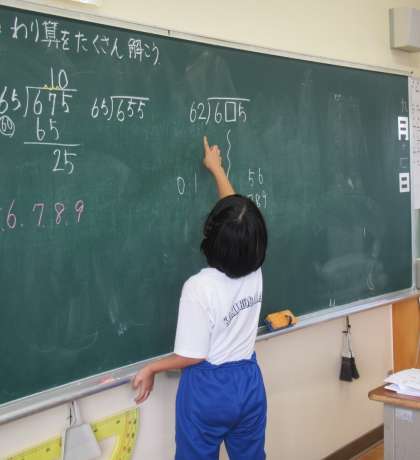 わり算をたくさん解こう
10
65)675
60
65
25
65)655
62)6□5
0 1
5 6
789
6.7.8.9
月
日